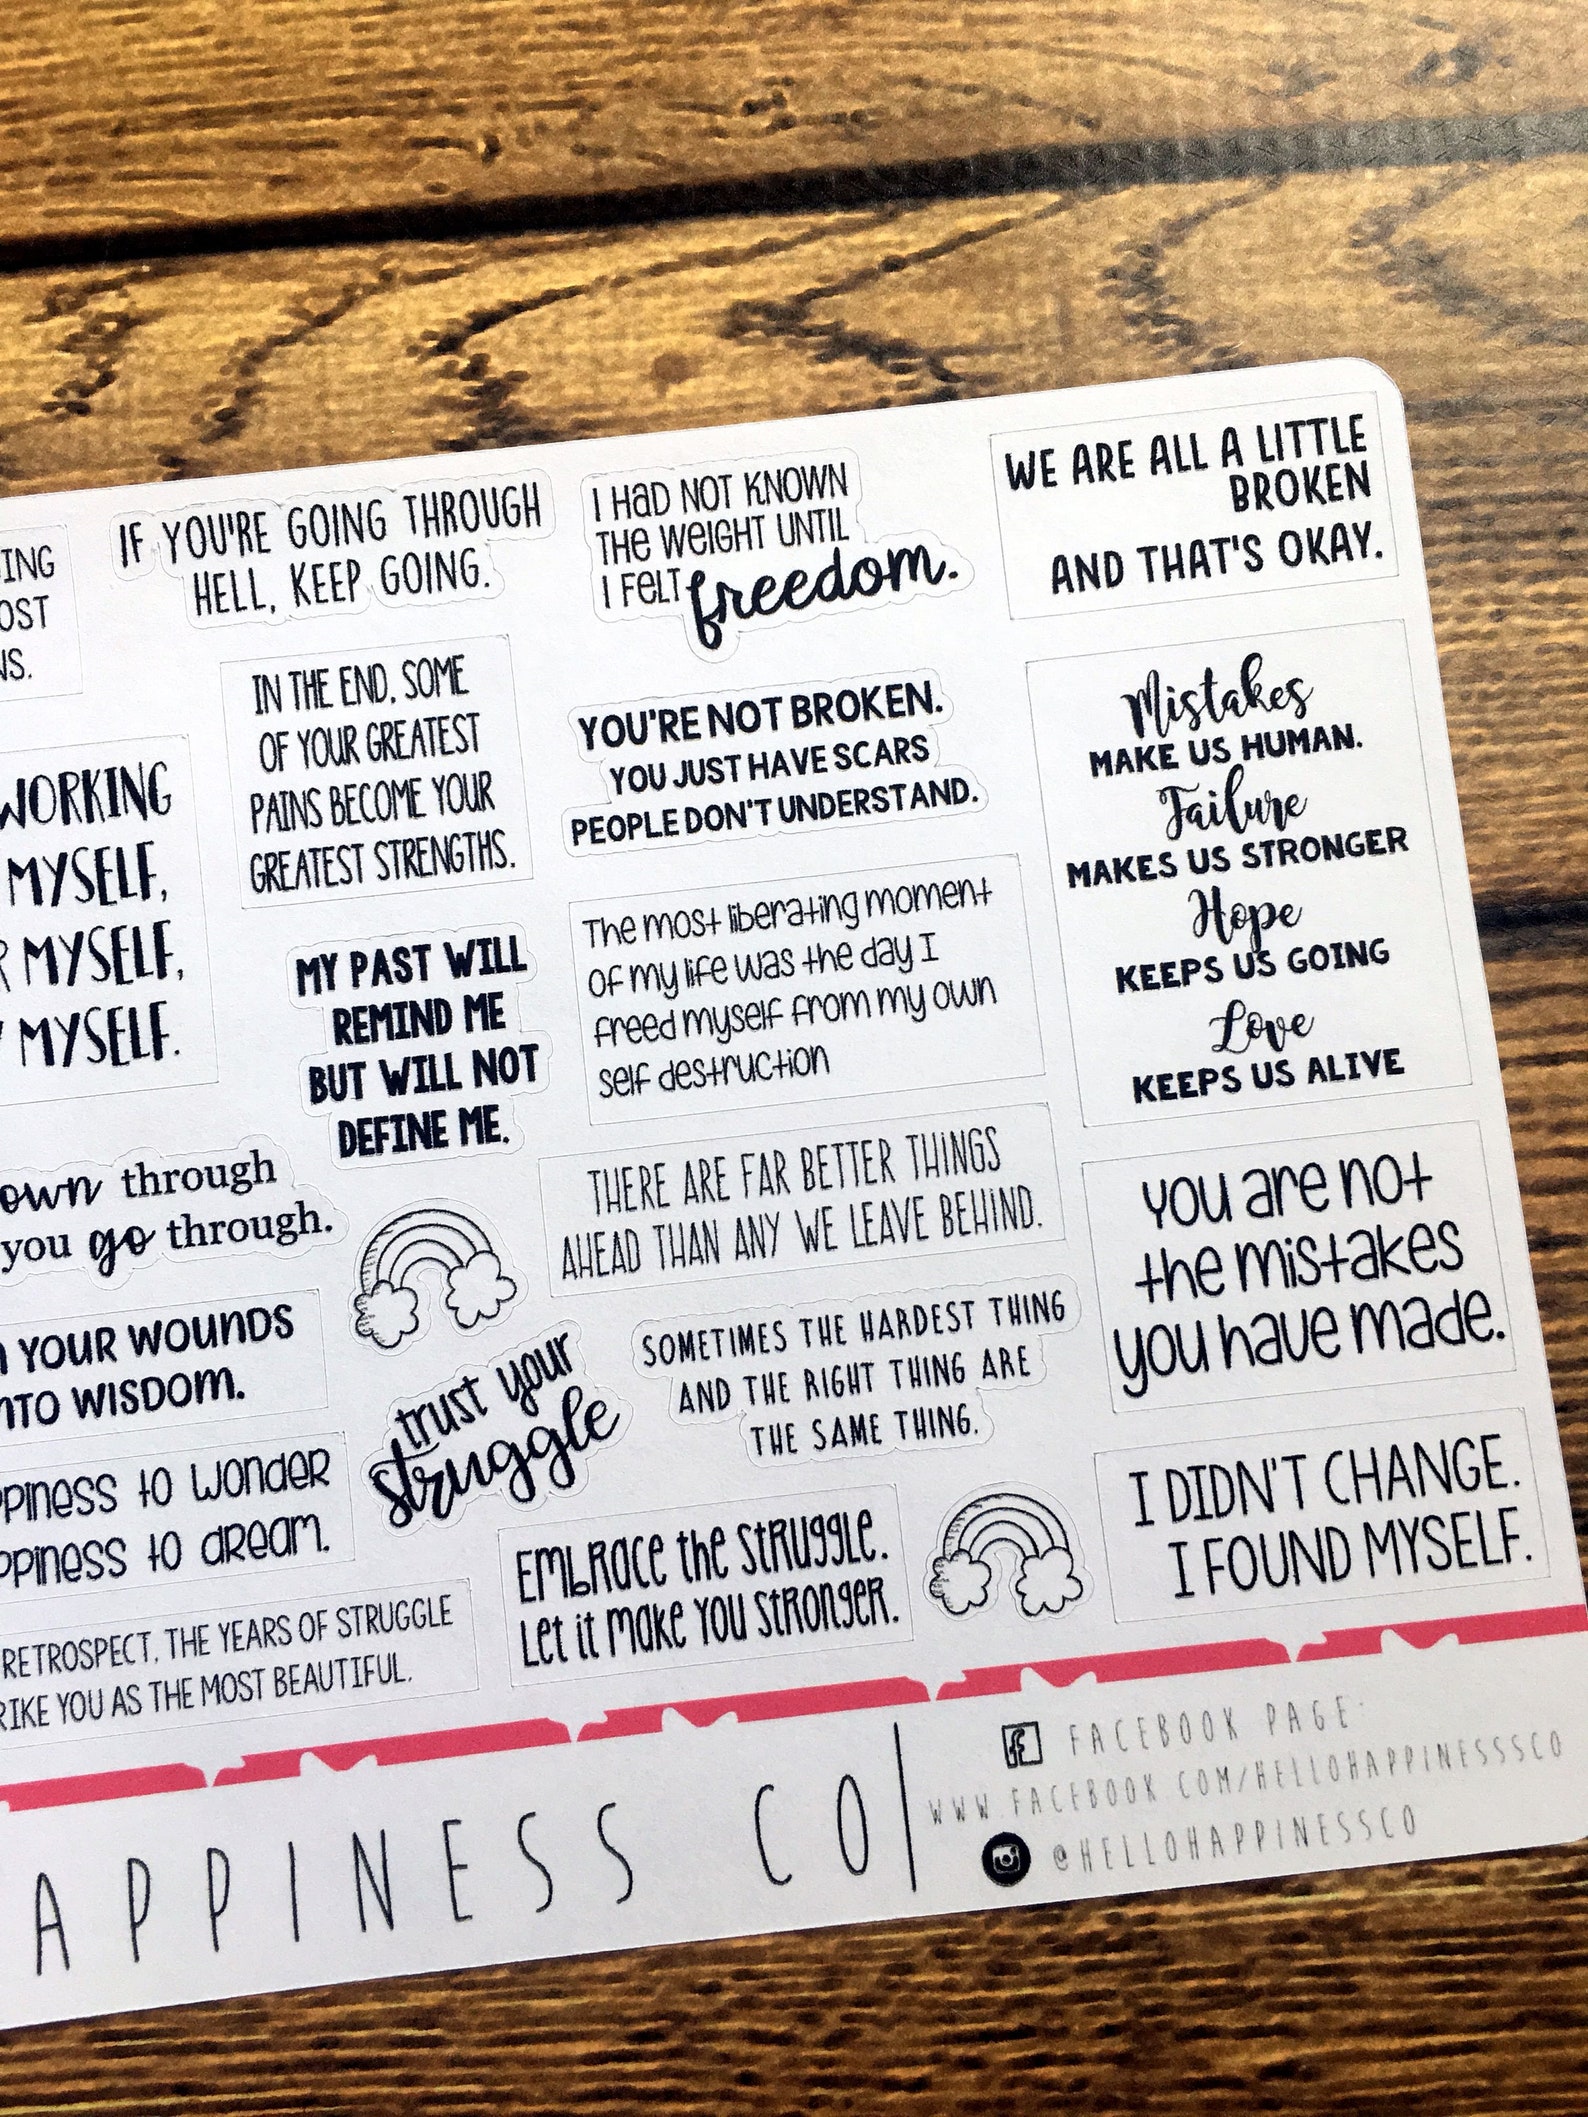 IF YOU'RE GOING THROUGH
HELL, KEEP GOING.
I HAD NOT KNOWN
THE WEIGHT UNTIL
I FELT freedom.
WE ARE ALL A LITTLE
BROKEN
AND THAT'S OKAY.
ING
OST
NS.
IN THE END, SOME
OF YOUR GREATEST
PAINS BECOME YOUR
GREATEST STRENGTHS.
YOU'RE NOT BROKEN.
YOU JUST HAVE SCARS
PEOPLE DON'T UNDERSTAND.
Mistakes
MAKE US HUMAN.
Failure
MAKES US STRONGER
Hope
KEEPS US GOING
Love
KEEPS US ALIVE
WORKING
MYSELF,
R MYSELF,
Y MYSELF.
MY PAST WILL
REMIND ME
BUT WILL NOT
DEFINE ME.
The most liberating moment
of my life was the day I
freed myself from my own
self destruction
THERE ARE FAR BETTER THINGS
AHEAD THAN ANY WE LEAVE BEHIND.
You are not
the mistakes
you have made.
own through
you go through.
YOUR WOUNDS
NTO WISDOM.
trust your
struggle
SOMETIMES THE HARDEST THING
AND THE RIGHT THING ARE
THE SAME THING.
PPINESS TO WONDER
PPINESS TO DREAM.
EMBRACE the STRUGGLE.
Let it make you STRONGER.
I DIDN'T CHANGE.
I FOUND MYSELF.
RETROSPECT, THE YEARS OF STRUGGLE
RIKE YOU AS THE MOST BEAUTIFUL.
APPINESS CO
FACEBOOK PAGE:
WWW.FACEBOOK.COM/HELLOHAPPINESSSCO
@HELLOHAPPINESSCO